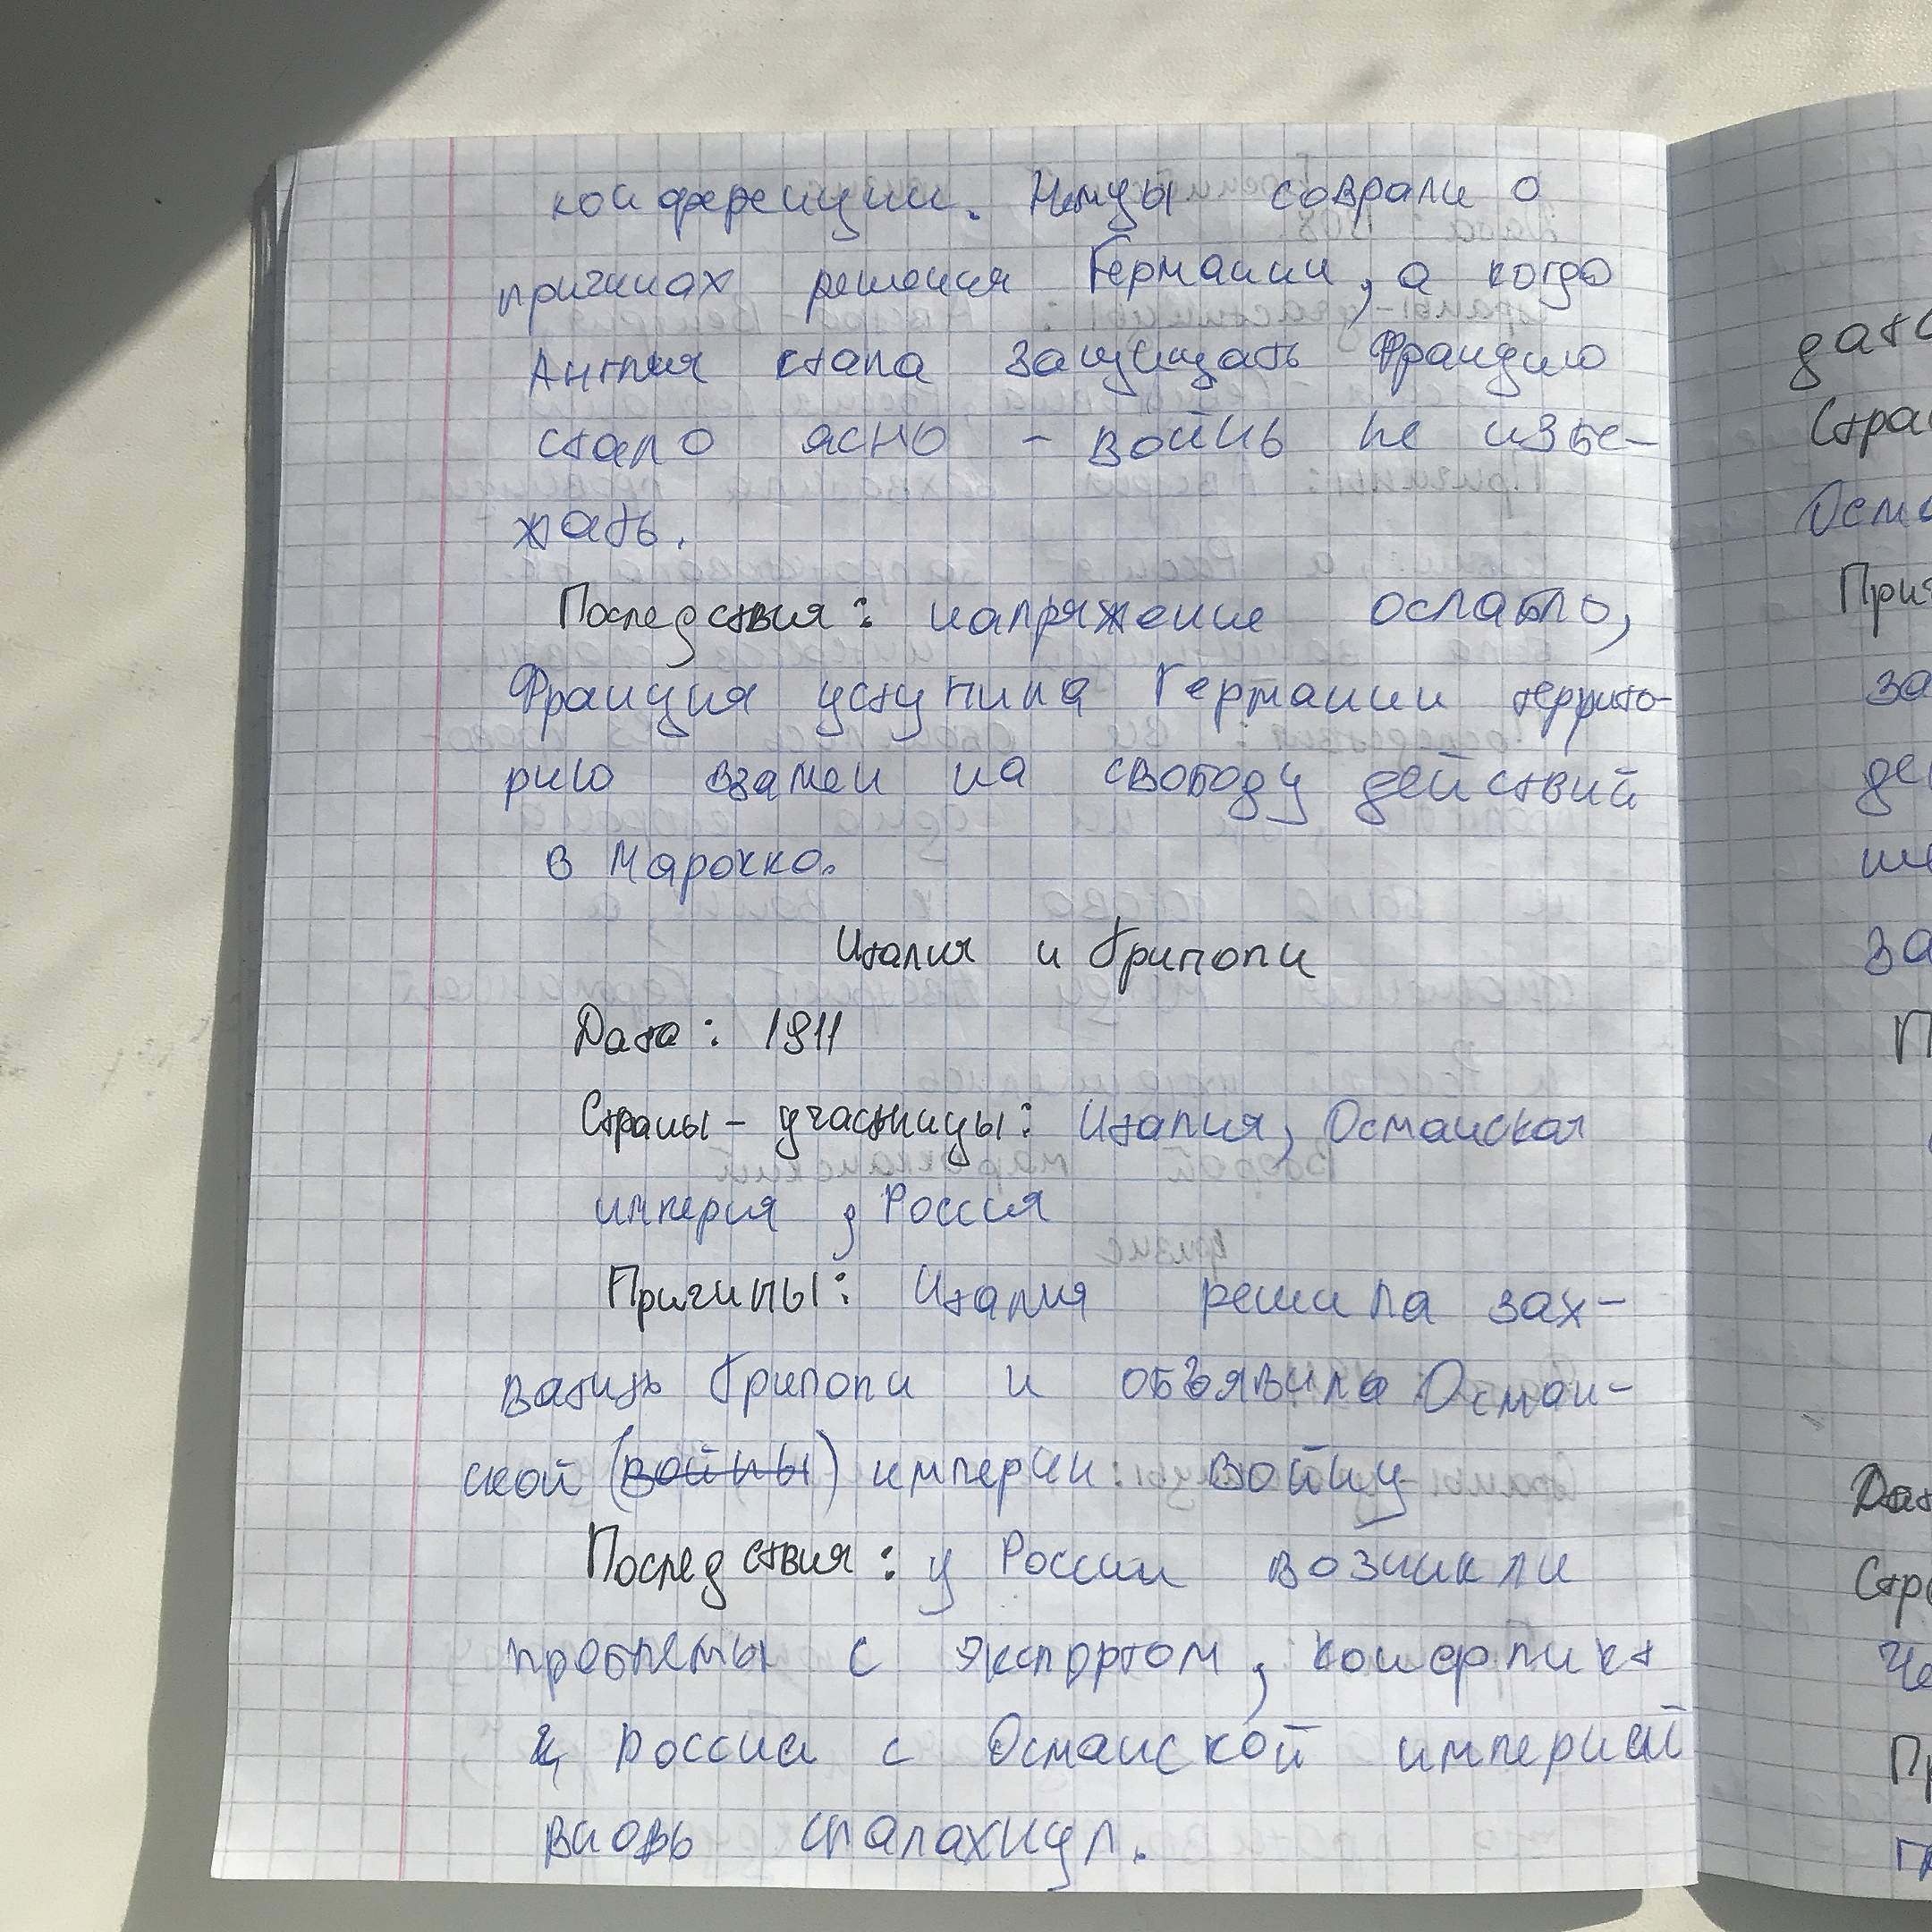 конференции. Немцы соврали о
причинах решения Германии, а когда
Англия стала защищать Францию
стало ясно - войны не избе-
жать.
Последствия: напряжение ослабло,
Франция уступила Германии террито-
рию взамен на свободу действий
в Марокко.
Италия и Триполи
Дата: 1911
Страны-участницы: Италия, Османская
империя, Россия
Причины: Италия решила зах-
ватить Триполи и объявила Осман-
ской (войны) империи: войну
Последствия: у России возникли
проблемы с экспортом, конфликт
России с Османской империей
вновь спалахнул.
дат
Стра
Осма
При
за
де
за
П
Дат
Стр
Че
Пр